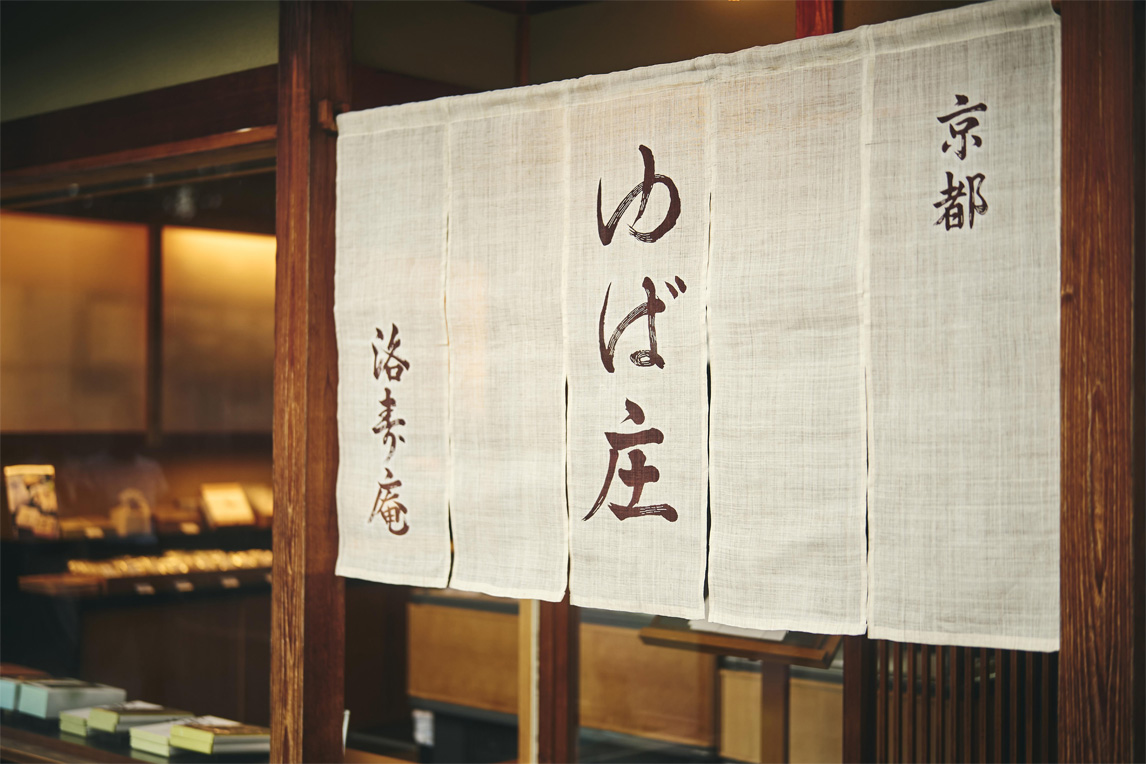 京都
ゆば庄
洛寿庵